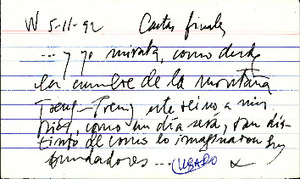 W 5-11-92 Cartas finales
... y yo miraba, como desde
la cumbre de la montaña
Treng-Treng este reino a mis
pies, como un día será, tan dis-
tinto de como lo imaginaron sus
fundadores ... USADO